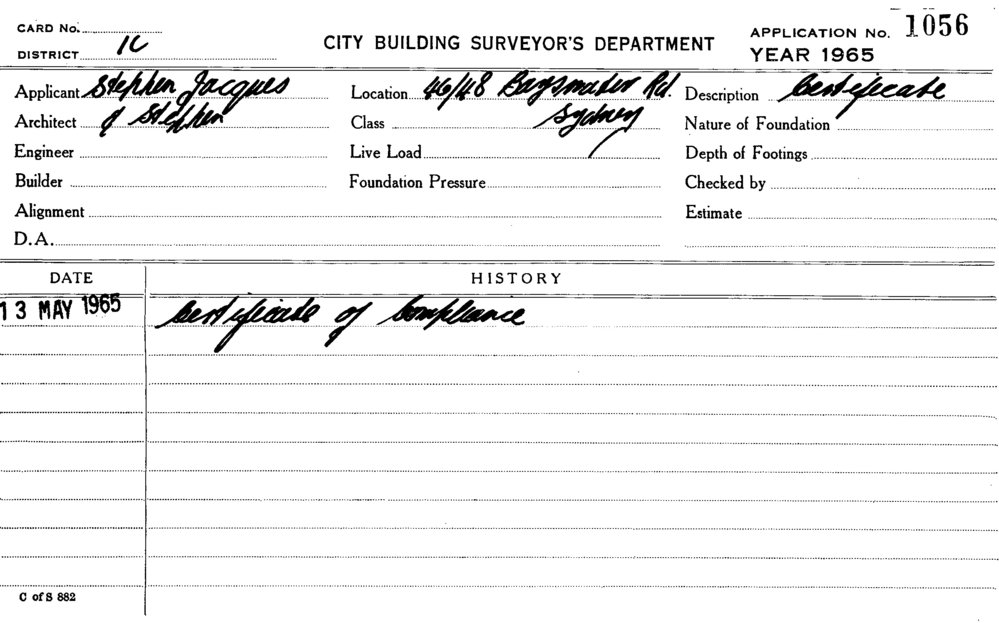 CARD No.
DISTRICT 1C
CITY BUILDING SURVEYOR'S DEPARTMENT
APPLICATION No. 1056
YEAR 1965
Applicant Stephen Jacques
Location 46/48 Bayswater Rd.
Description Certificate
Architect & Stephen
Class Sydney
Nature of Foundation
Engineer
Live Load
Depth of Footings
Builder
Foundation Pressure
Checked by
Alignment
Estimate
D.A.
DATE HISTORY
13 MAY 1965 Certificate of Compliance
C of S 882